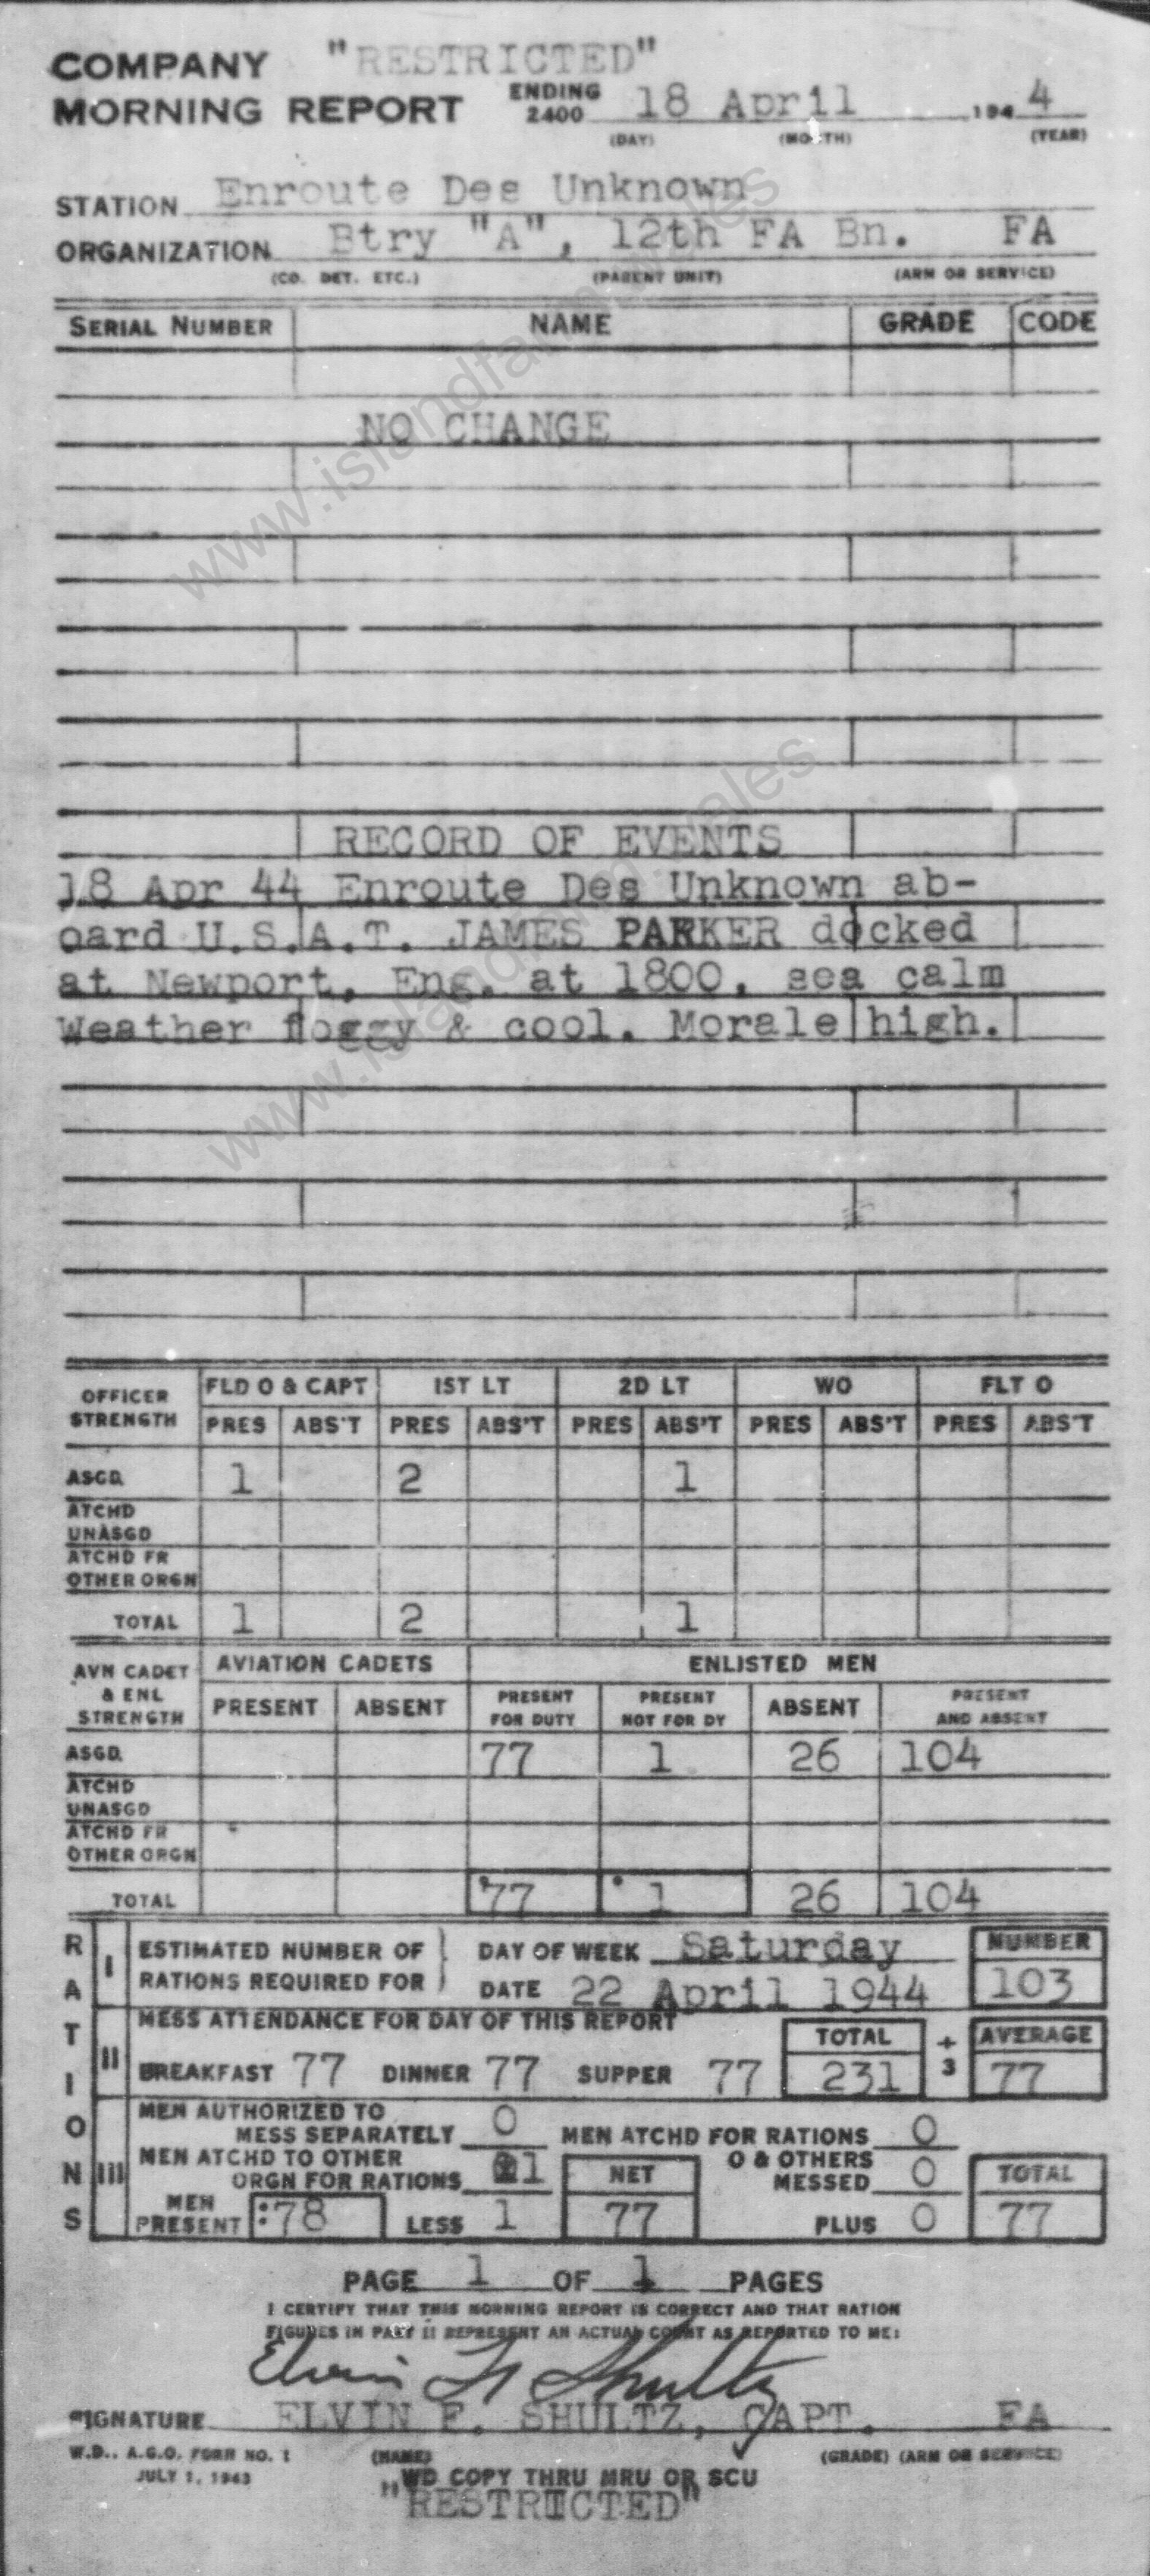 COMPANY "RESTRICTED"
MORNING REPORT ENDING 2400 18 April 194 4
(DAY) (MONTH) (YEAR)
STATION Enroute Des Unknown
ORGANIZATION Btry "A", 12th FA Bn. FA
(CO. DET. ETC.) (PARENT UNIT) (ARM OR SERVICE)
SERIAL NUMBER NAME GRADE CODE
NO CHANGE
RECORD OF EVENTS
18 Apr 44 Enroute Des Unknown ab-
oard U.S.A.T. JAMES PARKER docked
at Newport, Eng. at 1800, sea calm
Weather foggy & cool. Morale high.
OFFICER STRENGTH FLD O & CAPT 1ST LT 2D LT WO FLT O
PRES ABS'T PRES ABS'T PRES ABS'T PRES ABS'T PRES ABS'T
ASGD. 1 2 1
ATCHD
UNASGD
ATCHD FR
OTHER ORGN
TOTAL 1 2 1
AVN CADET & ENL STRENGTH AVIATION CADETS ENLISTED MEN
PRESENT ABSENT PRESENT FOR DUTY PRESENT NOT FOR DY ABSENT PRESENT AND ABSENT
ASGD. 77 1 26 104
ATCHD
UNASGD
ATCHD FR
OTHER ORGN
TOTAL 77 1 26 104
RATIONS
I ESTIMATED NUMBER OF DAY OF WEEK Saturday NUMBER
RATIONS REQUIRED FOR DATE 22 April 1944 103
MESS ATTENDANCE FOR DAY OF THIS REPORT TOTAL ÷ AVERAGE
II BREAKFAST 77 DINNER 77 SUPPER 77 231 3 77
MEN AUTHORIZED TO
MESS SEPARATELY 0 MEN ATCHD FOR RATIONS 0
III MEN ATCHD TO OTHER
ORGN FOR RATIONS 1 NET O & OTHERS MESSED 0 TOTAL
MEN PRESENT :78 LESS 1 77 PLUS 0 77
PAGE 1 OF 1 PAGES
I CERTIFY THAT THIS MORNING REPORT IS CORRECT AND THAT RATION
FIGURES IN PART II REPRESENT AN ACTUAL COUNT AS REPORTED TO ME:
Elvin F Shultz
SIGNATURE ELVIN F. SHULTZ, CAPT. FA
W.D., A.G.O. FORM NO. 1 (NAME) (GRADE) (ARM OR SERVICE)
JULY 1, 1943
WD COPY THRU MRU OR SCU
"RESTRICTED"